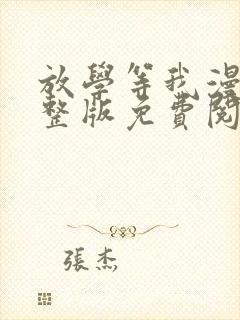 放學等我漫
整版免費閱
張杰